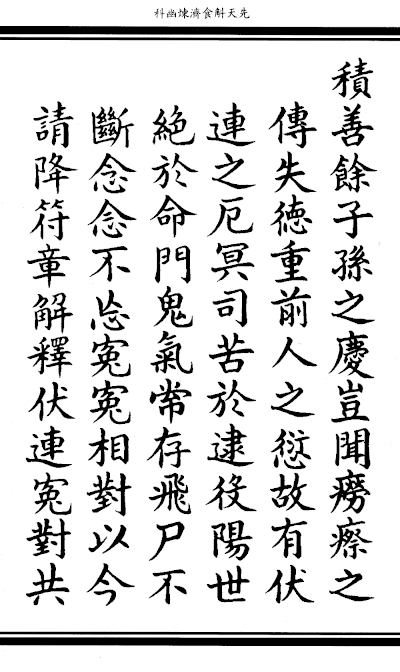 先天斛食濟煉幽科
積善餘子孫之慶豈聞癆瘵之
傳失德重前人之愆故有伏
連之厄冥司苦於逮役陽世
絕於命門鬼氣常存飛尸不
斷念念不忘冤冤相對以今
請降符章解釋伏連冤對共